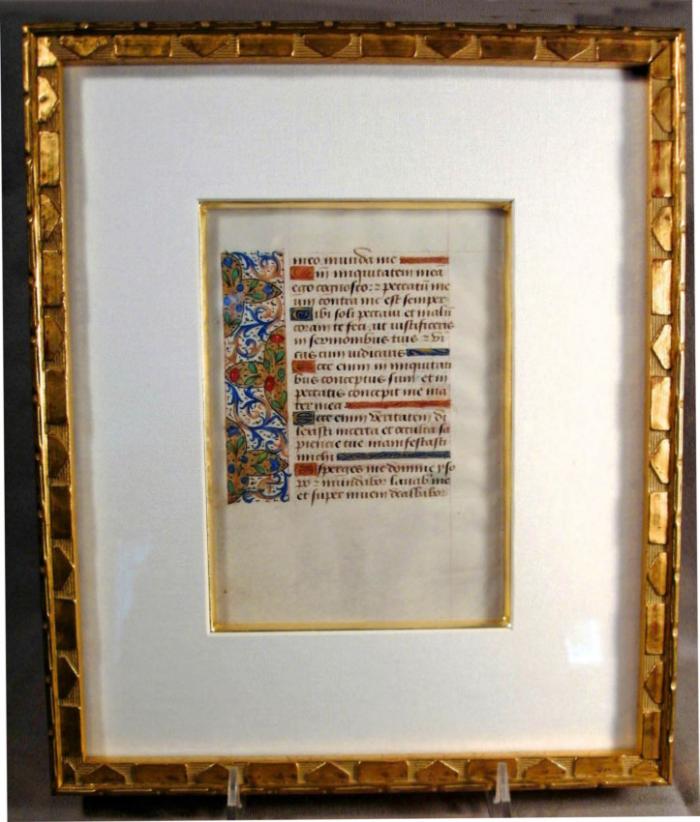 meo munda me
Qm̄ iniquitatem mea
ego cognosco: ⁊ peccatū me
um contra me est semper
Tibi soli peccaui et malū
coram te feci ut iustificeris
in sermonibus tuis ⁊ vi
cas cum iudicaris
Ecce enim in iniquitati
bus conceptus sum et in
peccatis concepit me ma
ter mea
Ecce enim veritatem di
lexisti incerta et occulta sa
piencie tue manifestasti
michi
Asperges me domine yso
po ⁊ mundabor lauab̄ me
et super niuem dealbabor